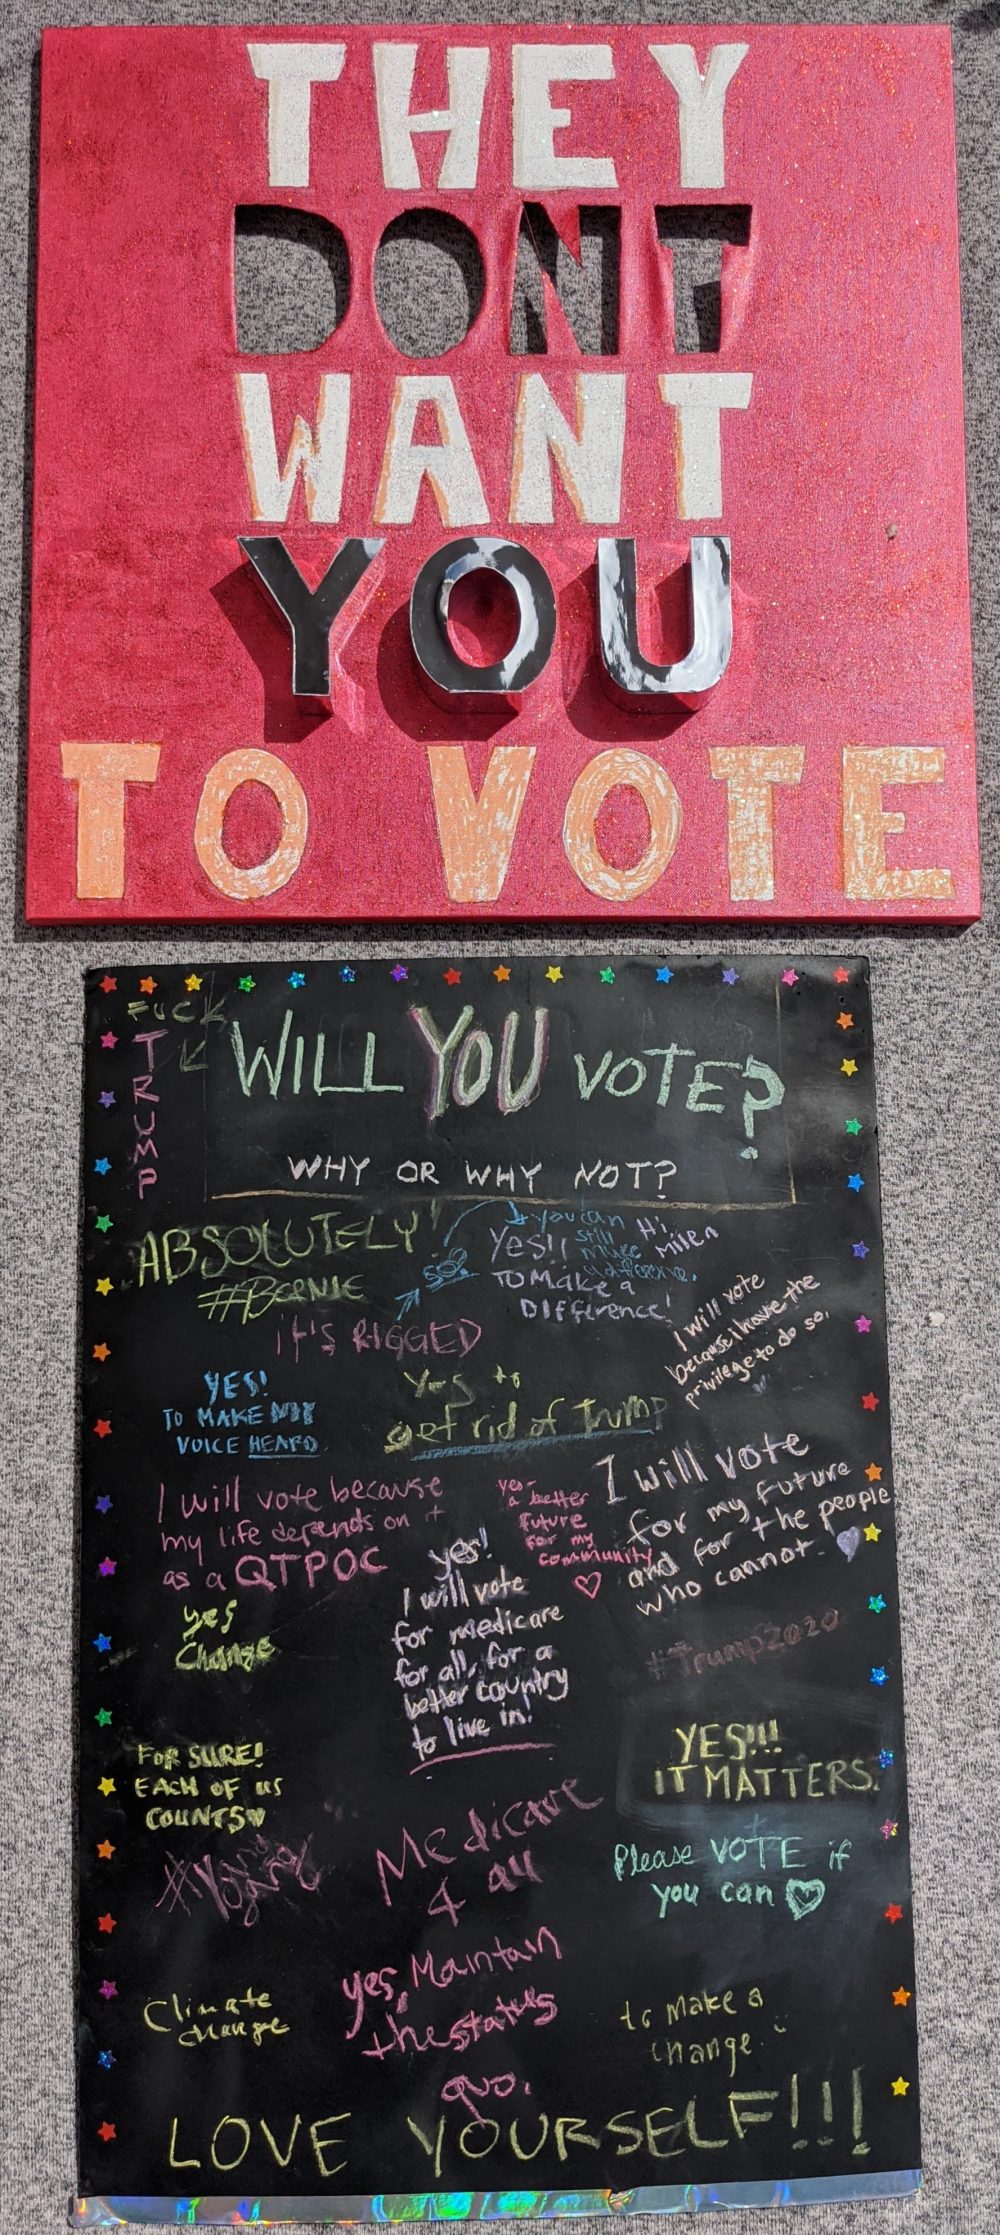 THEY
DONT
WANT
YOU
TO VOTE
FUCK
TRUMP
WILL YOU VOTE?
WHY OR WHY NOT?
ABSOLUTELY!
#BERNIE
so?
& you can
still
make
a difference.
Hi,
Milen
Yes!!
TO MAKE a
DIFFERENCE!
it's RIGGED
I will vote
because i have the
privilege to do so.
YES!
TO MAKE MY
VOICE HEARD
Yes to
get rid of Trump
I will vote because
my life depends on it
as a QTPOC
yes-
a better
future
for my
community
I will vote
for my future
and for the people
who cannot.
yes!
I will vote
for medicare
for all, for a
better country
to live in!
yes
Change
#Trump2020
FOR SURE!
EACH OF US
COUNTS
YES!!!
IT MATTERS.
Medicare
4 all
Please VOTE if
you can
#Yang
yes, Maintain
the status
quo.
Climate
change
to make a
change.
LOVE YOURSELF!!!